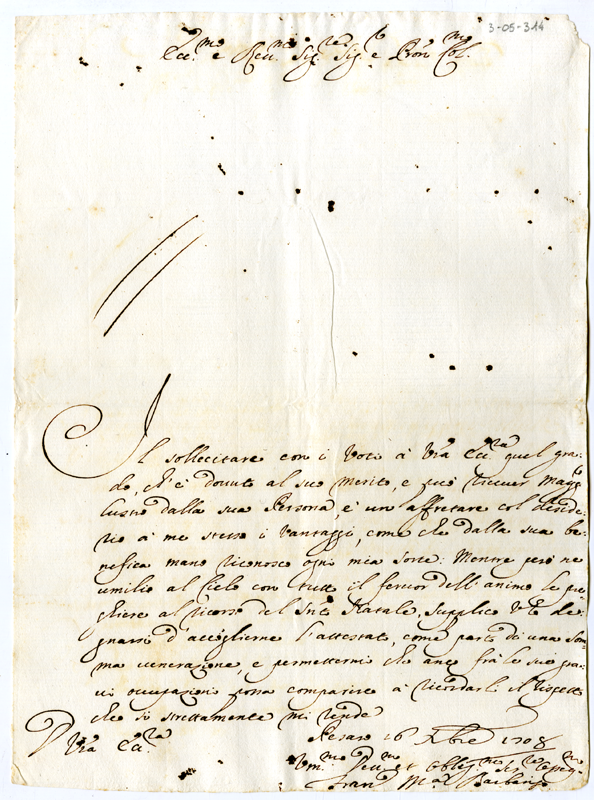 3-05-314
Ecc.mo e Rev.mo Sig.re Sig.r e Pron. Col.
Il sollecitare con i Voti à Vra Ecc.za quel gra-
do, ch'è dovuto al suo merito, e può ricever Magg.e
lustro dalla sua Persona, è un affrettare col deside-
rio à me stesso i Vantaggi, come che dalla sua be-
nefica mano riconosco ogni mia sorte. Mentre però ne
umilio al Cielo con tutto il fervor dell'animo le pre-
ghiere al ricorso del Snto Natale, supplico de-
gnarsi d'accoglierne l'attestato, come parto di una som-
ma venerazione, e permettermi che anco frà le sue gra-
vi occupazioni possa comparire à ricordarli il rispetto
che sì strettamente mi rende
D Vra Ecc.za
Pesaro 16 Xbre 1708
Um.mo Dev.mo et Obblig.mo
Fran.